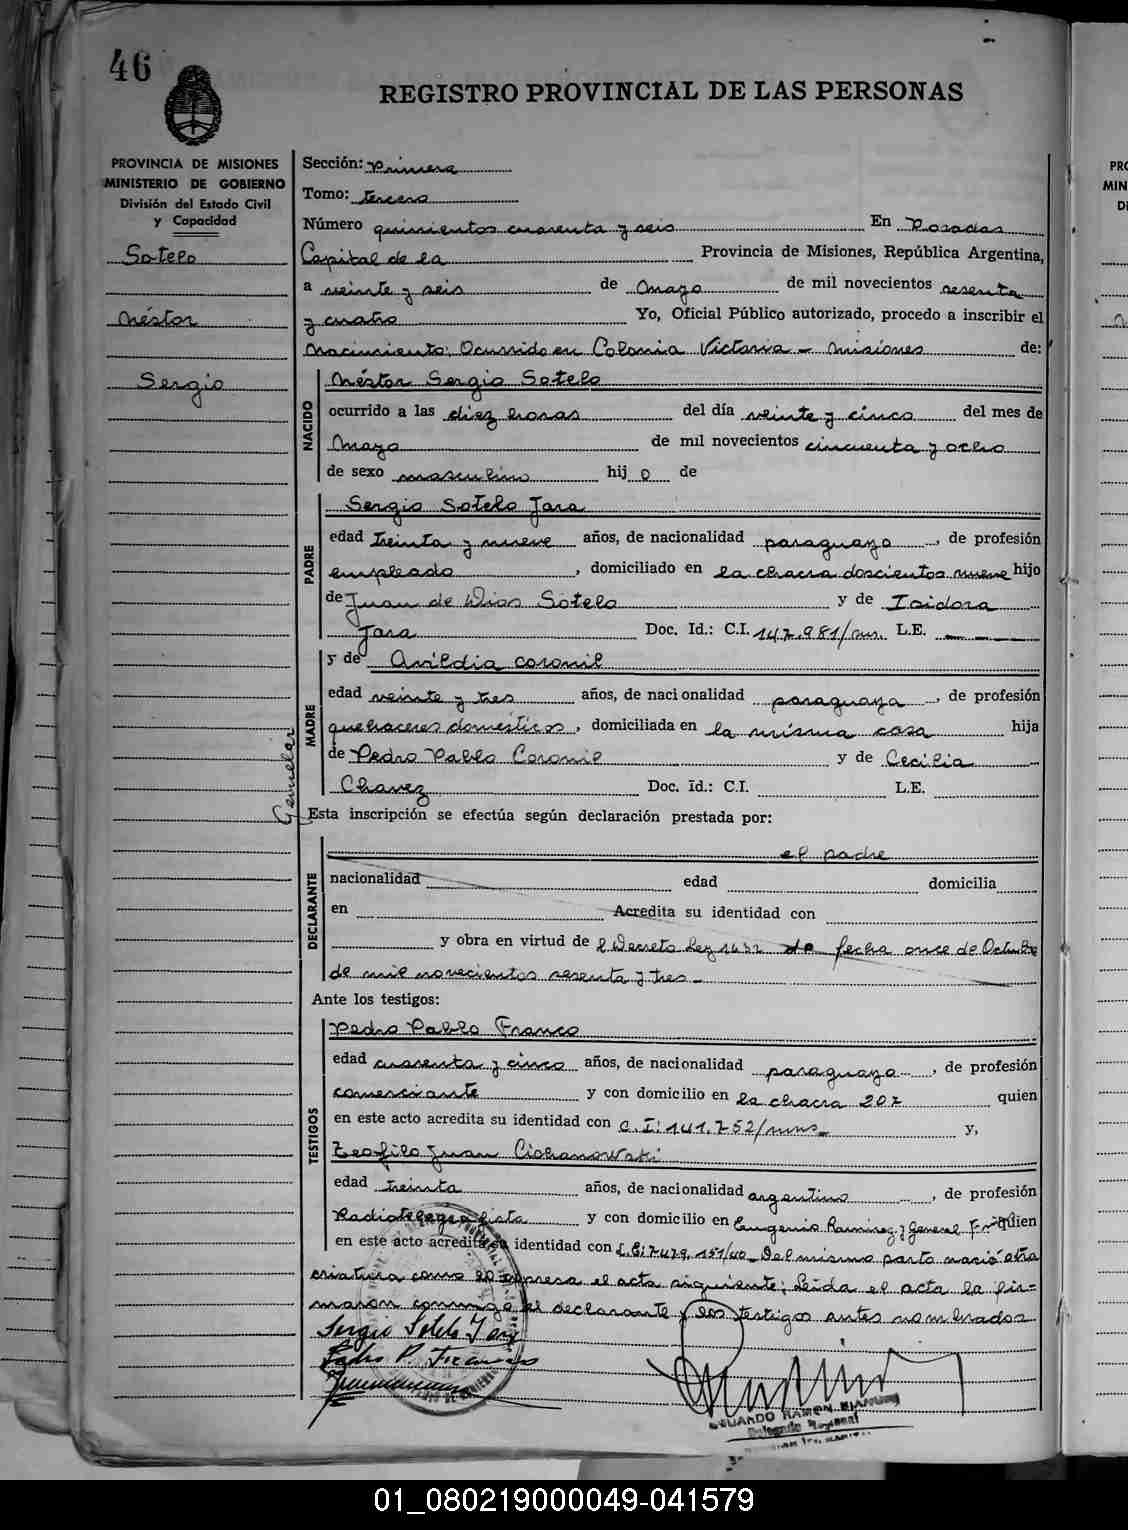 46
REGISTRO PROVINCIAL DE LAS PERSONAS
PROVINCIA DE MISIONES
MINISTERIO DE GOBIERNO
División del Estado Civil
y Capacidad
Sotelo
Néstor
Sergio
Gemelar
Sección: Primera
Tomo: tercero
Número quinientos cuarenta y seis En Posadas
Capital de la Provincia de Misiones, República Argentina,
a veinte y seis de Mayo de mil novecientos sesenta
y cuatro Yo, Oficial Público autorizado, procedo a inscribir el
Nacimiento: Ocurrido en Colonia Victoria - Misiones de:
NACIDO
Néstor Sergio Sotelo
ocurrido a las diez horas del día veinte y cinco del mes de
Mayo de mil novecientos cincuenta y ocho
de sexo masculino hij o de
PADRE
Sergio Sotelo Jara
edad treinta y nueve años, de nacionalidad paraguaya, de profesión
empleado, domiciliado en la chacra doscientos nueve hijo
de Juan de Dios Sotelo y de Isidora
Jara Doc. Id.: C.I. 147.981/mns. L.E. - - - -
MADRE
y de Avildia Coronil
edad veinte y tres años, de nacionalidad paraguaya, de profesión
quehaceres domésticos, domiciliada en la misma casa hija
de Pedro Pablo Coronil y de Cecilia
Chavez Doc. Id.: C.I. L.E.
Esta inscripción se efectúa según declaración prestada por:
DECLARANTE
el padre
nacionalidad edad domicilia
en Acredita su identidad con
y obra en virtud de l Decreto Ley 1632 de fecha once de Octubre
de mil novecientos sesenta y tres -
Ante los testigos:
TESTIGOS
Pedro Pablo Franco
edad cuarenta y cinco años, de nacionalidad paraguaya, de profesión
comerciante y con domicilio en la chacra 207 quien
en este acto acredita su identidad con C.I: 141.752/mns - y,
Teofilo Juan Ciohanowski
edad treinta años, de nacionalidad argentino, de profesión
Radiotelegrafista y con domicilio en Eugenio Ramirez y General quien
en este acto acredita su identidad con L.E: 7.479.151/40 - Del mismo parto nació otra
criatura como se expresa el acta siguiente; Leída el acta la fir-
maron conmigo el declarante y los testigos antes nombrados
Sergio Sotelo Jara
Pedro P. Franco
EDUARDO RAMON
Delegado Regional
01_080219000049-041579